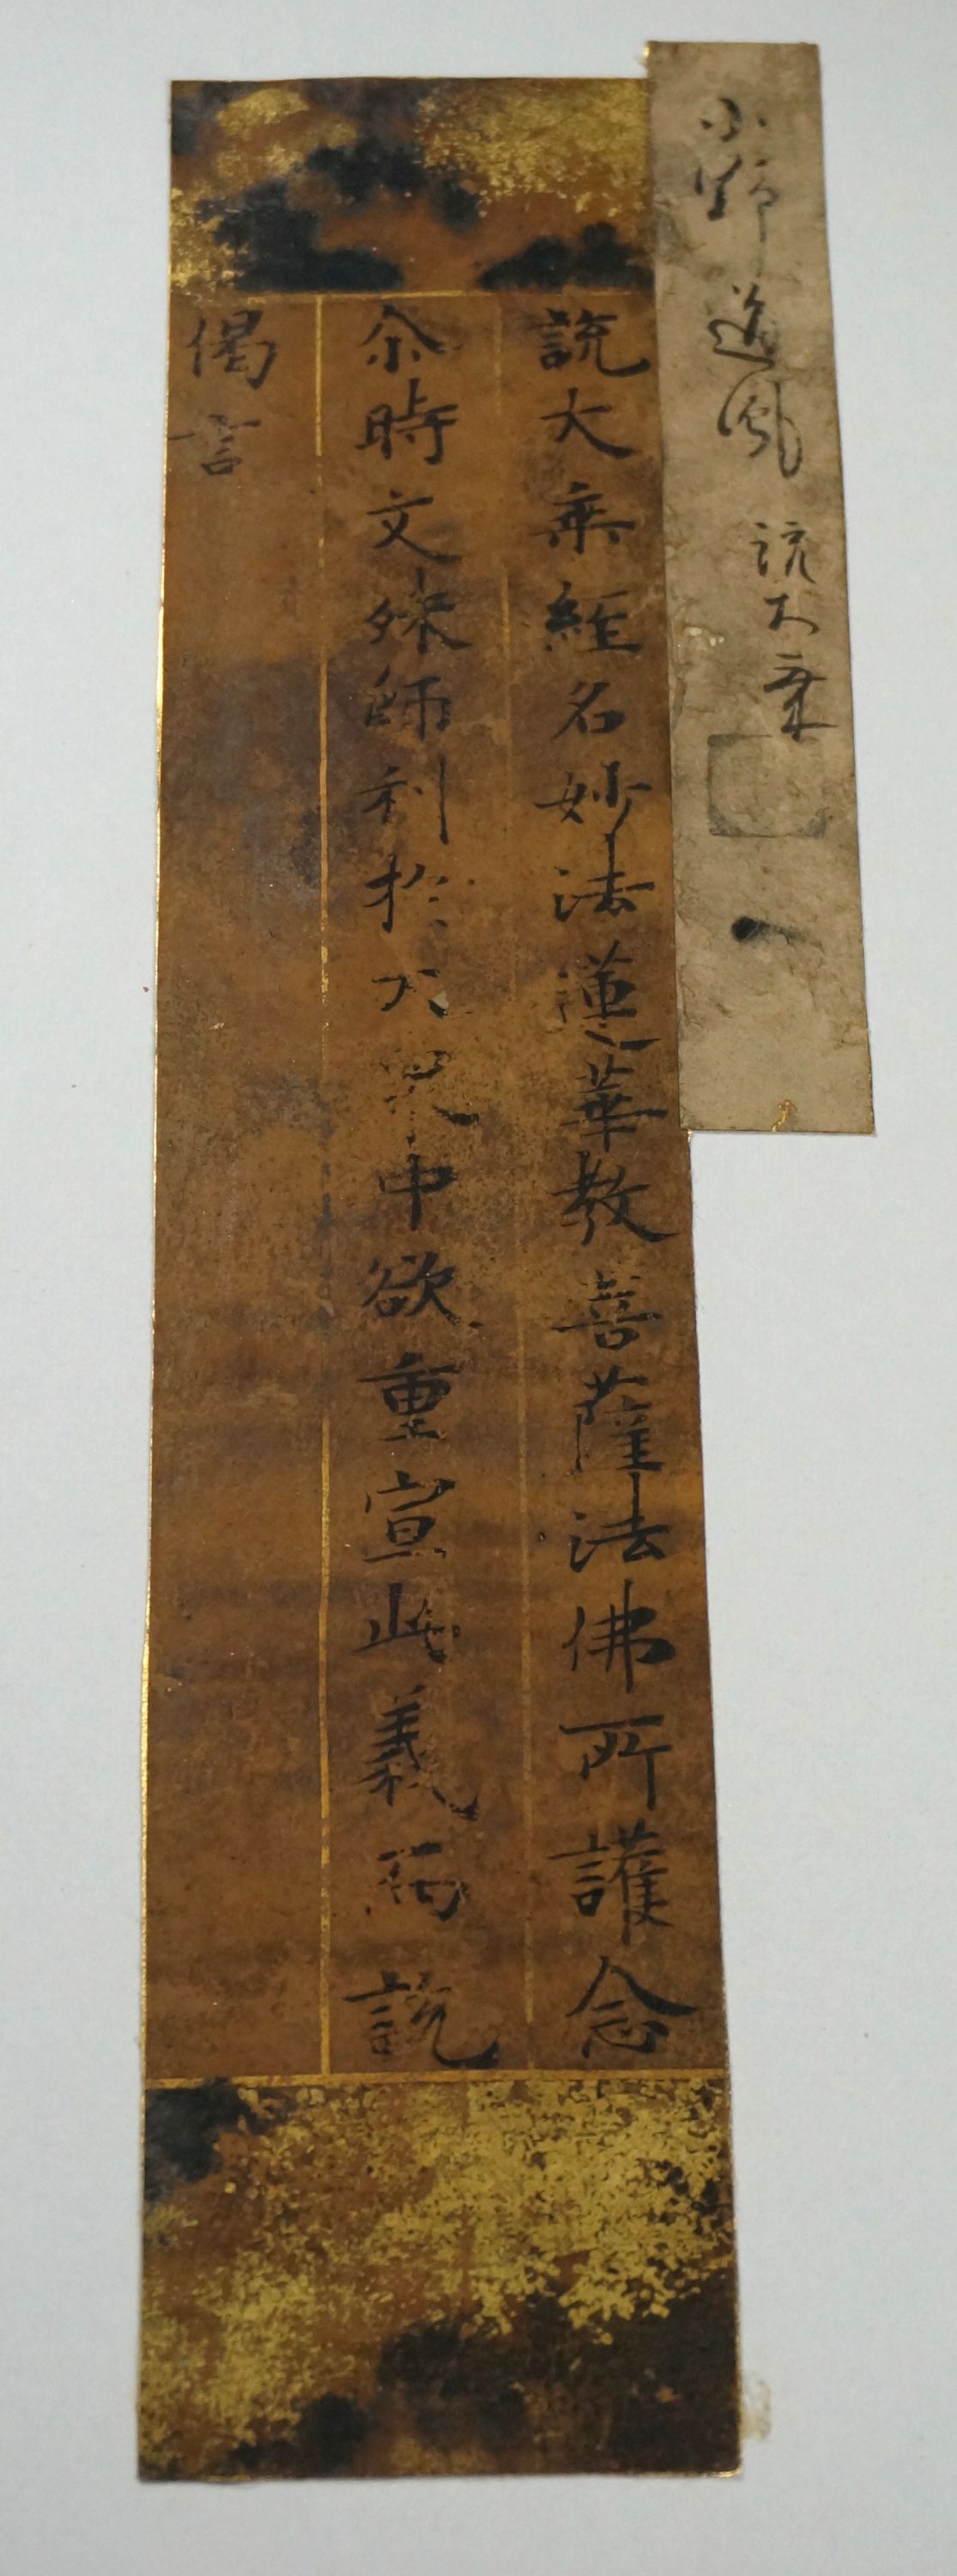 小野道風 説大乗
説大乗経名妙法蓮華教菩薩法佛所護念
尒時文殊師利於大衆中欲重宣此義而説
偈言